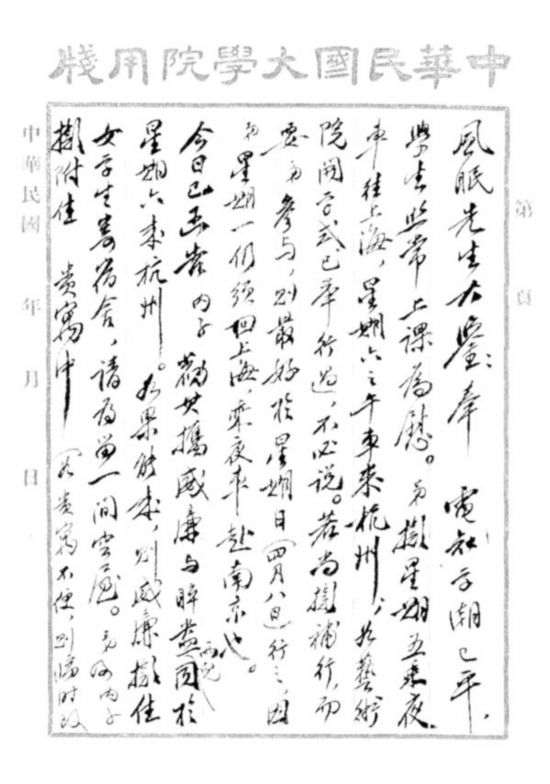 中華民國大學院用牋
第 頁
風眠先生大鑒：奉 電敬學潮已平，
學生照常上課為慰。弟擬星期五乘夜
車往上海，星期六之午車來杭州，如藝術
院開學式已舉行過，不必說。若尚擬補行，而
要弟參与，則最好於星期日（四月八日）行之，因
弟星期一仍須回上海，乘夜車赴南京也。
今日已函告內子，勸其攜威廉与睟盎兩兒同於
星期六來杭州。如果能成，則威廉擬住
女學生寄宿舍，請為留一間空屋。弟及內子
擬附住 貴寓中（若貴寓不便，則臨時改
中華民國 年 月 日